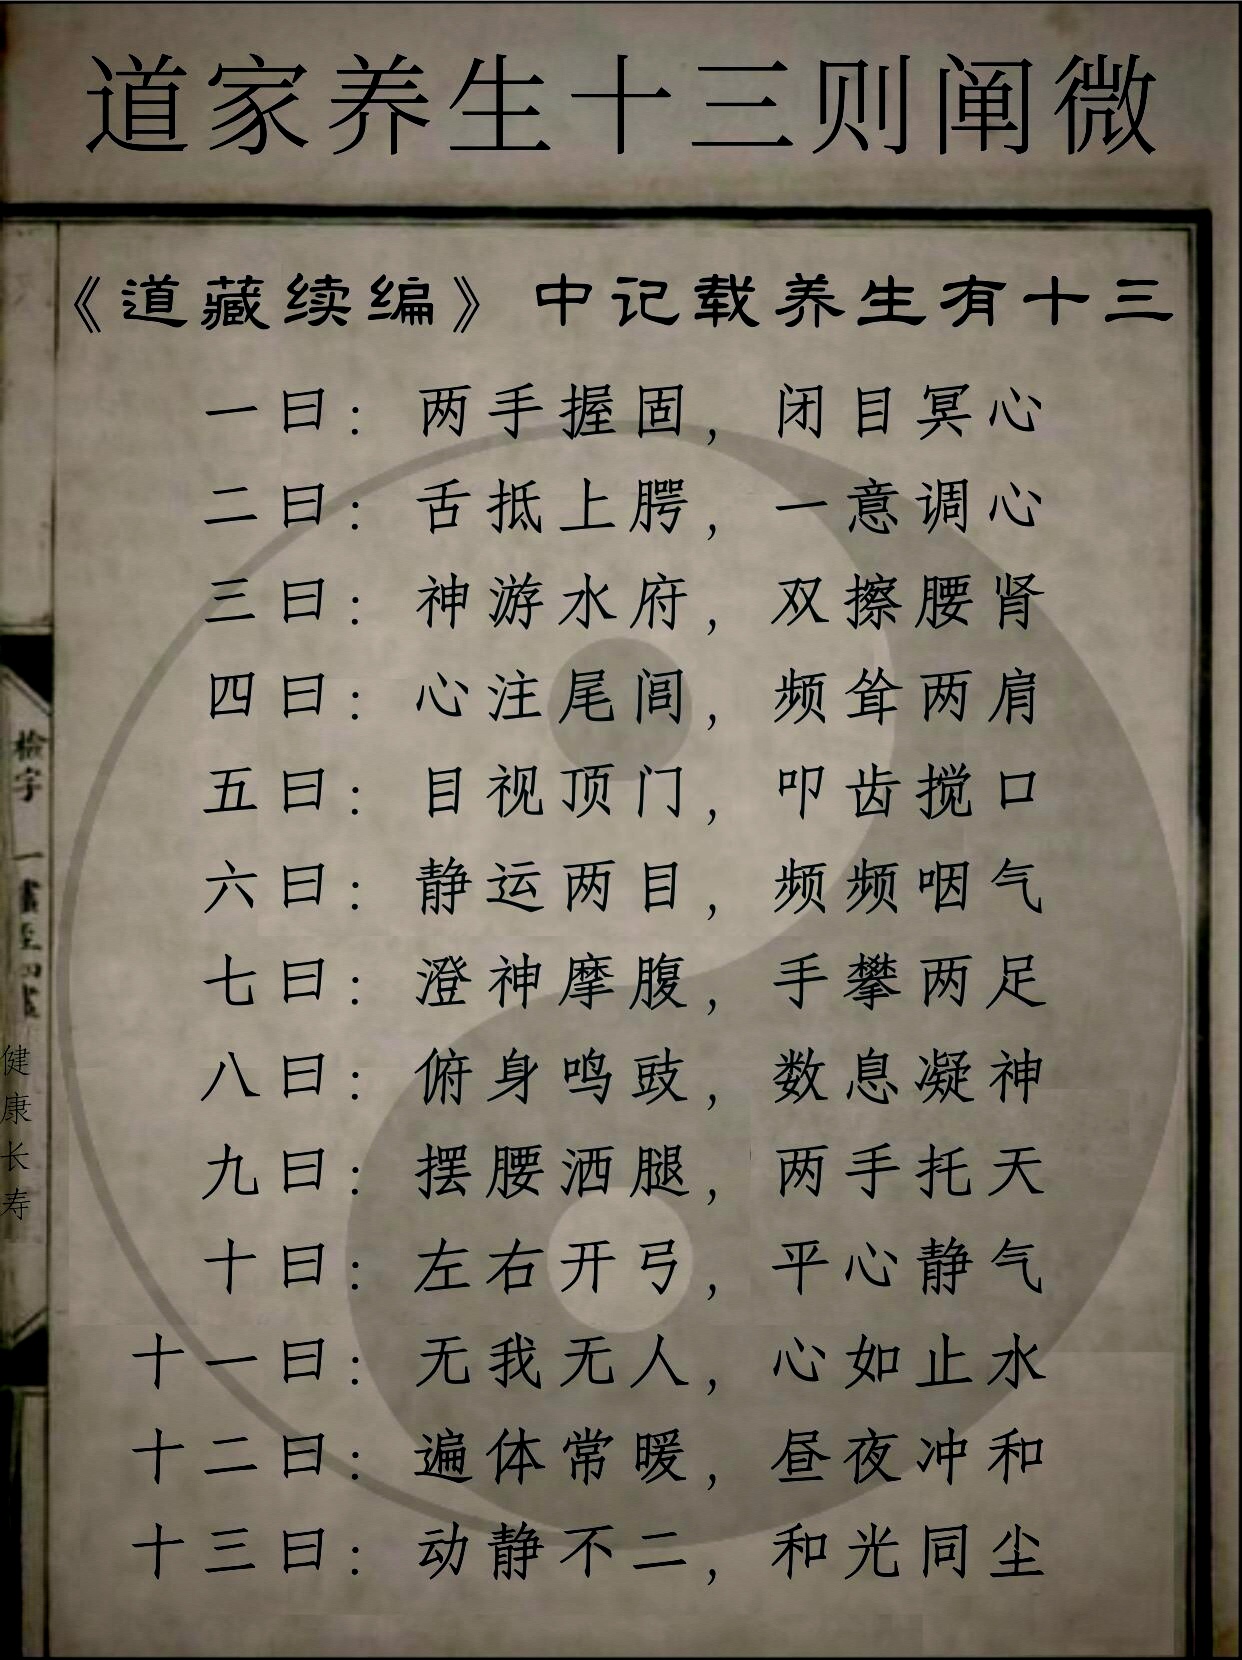 道家养生十三则阐微
《道藏续编》中记载养生有十三
一曰：两手握固，闭目冥心
二曰：舌抵上腭，一意调心
三曰：神游水府，双擦腰肾
四曰：心注尾闾，频耸两肩
五曰：目视顶门，叩齿搅口
六曰：静运两目，频频咽气
七曰：澄神摩腹，手攀两足
八曰：俯身鸣豉，数息凝神
九曰：摆腰洒腿，两手托天
十曰：左右开弓，平心静气
十一曰：无我无人，心如止水
十二曰：遍体常暖，昼夜冲和
十三曰：动静不二，和光同尘
检字
健康长寿